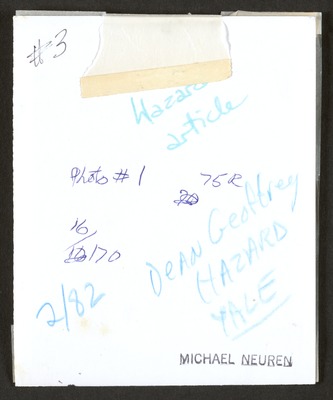 #3
Hazard
article
Photo #1
75R
16/
170
2/82
DEAN Geoffrey
HAZARD
YALE
MICHAEL NEUREN